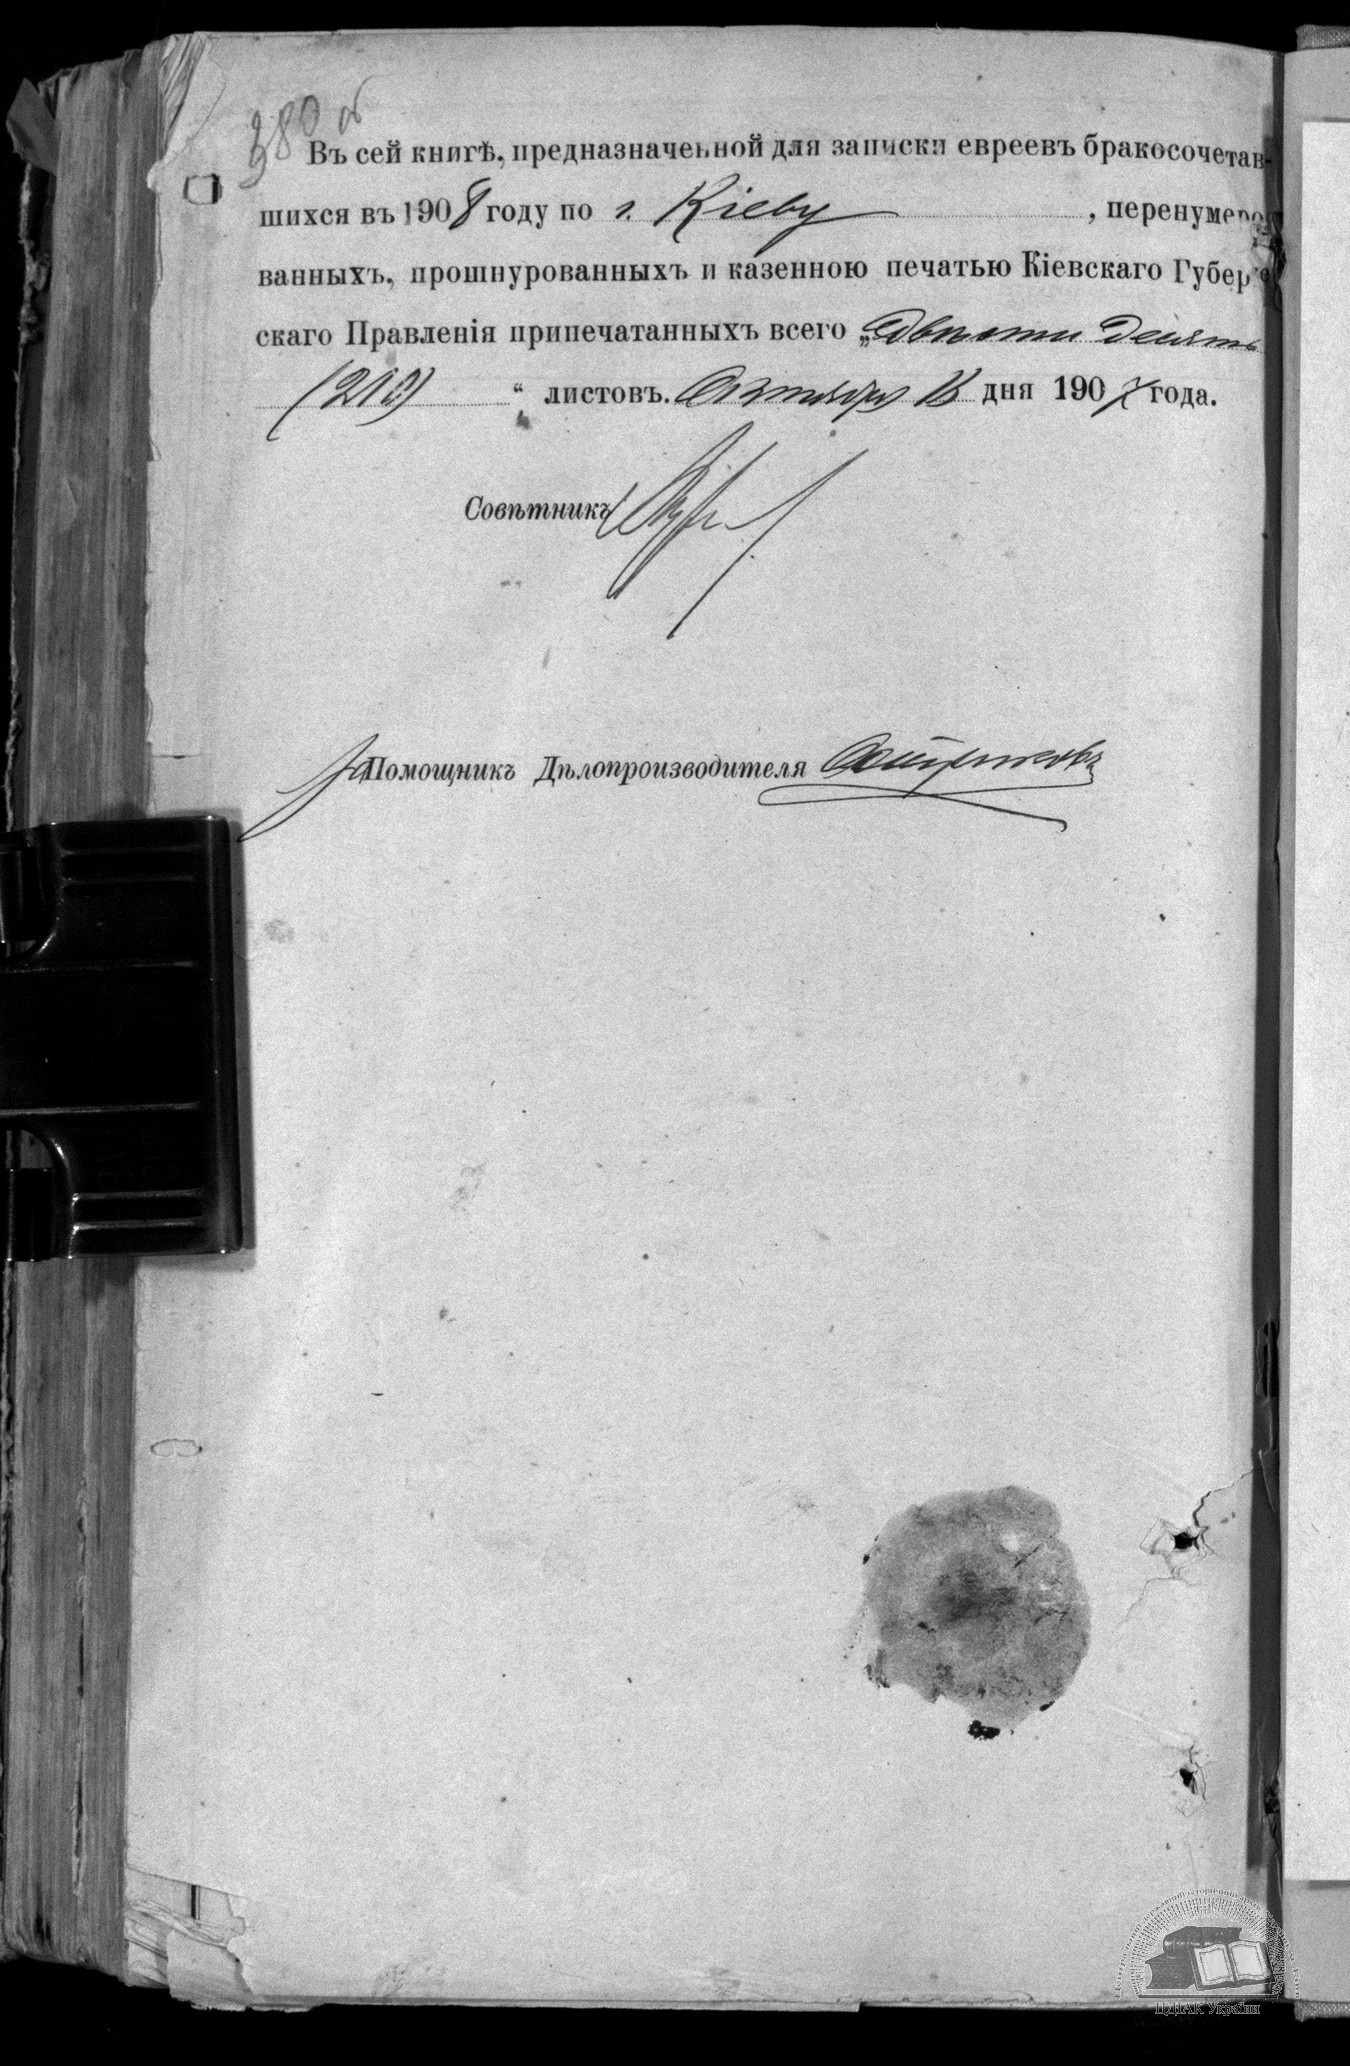 380 об
Въ сей книгѣ, предназначенной для записки евреевъ бракосочетав-
шихся въ 1908 году по г. Кіеву, перенумеро
ванныхъ, прошнурованныхъ и казенною печатью Кіевскаго Губерн
скаго Правленія припечатанныхъ всего „Двѣсти десять
(210) “ листовъ. Октября дня 1907 года.
Совѣтникъ
За Помощникъ Дѣлопроизводителя
ЦДІАК України